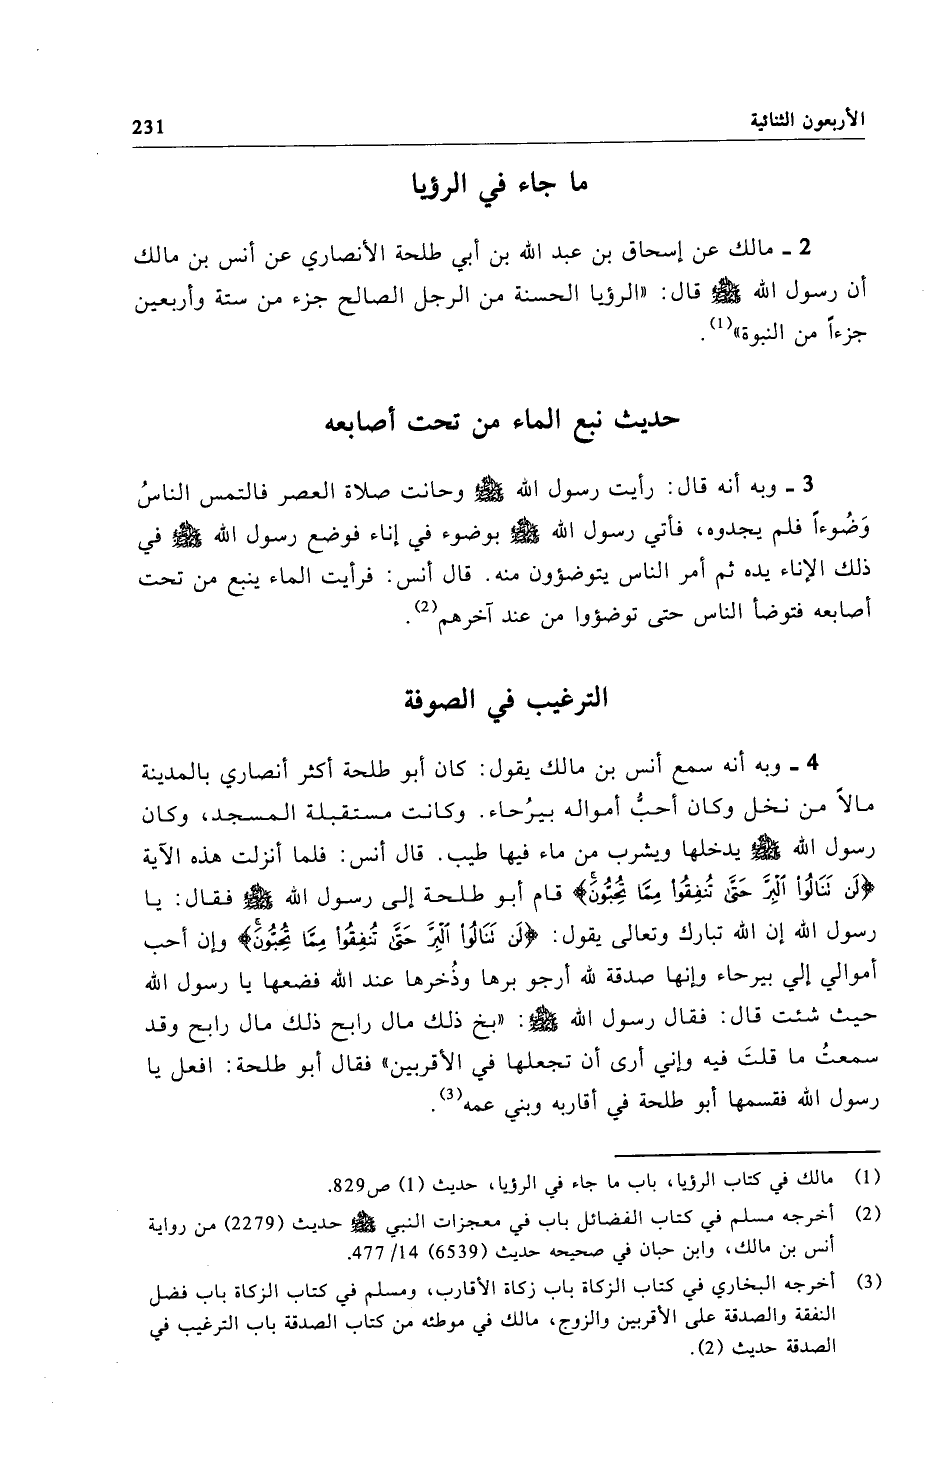 الأربعون الثنائية 231
ما جاء في الرؤيا
2 ـ مالك عن إسحاق بن عبد الله بن أبي طلحة الأنصاري عن أنس بن مالك
أن رسول الله ﷺ قال: «الرؤيا الحسنة من الرجل الصالح جزء من ستة وأربعين
جزءاً من النبوة»(1).
حديث نبع الماء من تحت أصابعه
3 ـ وبه أنه قال: رأيت رسول الله ﷺ وحانت صلاة العصر فالتمس الناسُ
وَضُوءاً فلم يجدوه، فأتي رسول الله ﷺ بوضوء في إناء فوضع رسول الله ﷺ في
ذلك الإناء يده ثم أمر الناس يتوضؤون منه. قال أنس: فرأيت الماء ينبع من تحت
أصابعه فتوضأ الناس حتى توضؤوا من عند آخرهم(2).
الترغيب في الصوفة
4 ـ وبه أنه سمع أنس بن مالك يقول: كان أبو طلحة أكثر أنصاري بالمدينة
مالاً من نخل وكان أحبُّ أمواله بيرُحاء. وكانت مستقبلة المسجد، وكان
رسول الله ﷺ يدخلها ويشرب من ماء فيها طيب. قال أنس: فلما أنزلت هذه الآية
﴿لَن نَنَالُوا۟ ٱلْبِرَّ حَتَّىٰ تُنفِقُوا۟ مِمَّا تُحِبُّونَۚ﴾ قام أبو طلحة إلى رسول الله ﷺ فقال: يا
رسول الله إن الله تبارك وتعالى يقول: ﴿لَن نَنَالُوا۟ ٱلْبِرَّ حَتَّىٰ تُنفِقُوا۟ مِمَّا تُحِبُّونَۚ﴾ وإن أحب
أموالي إلي بيرحاء وإنها صدقة لله أرجو برها وذُخرها عند الله فضعها يا رسول الله
حيث شئت قال: فقال رسول الله ﷺ: «بخ ذلك مال رابح ذلك مال رابح وقد
سمعتُ ما قلتَ فيه وإني أرى أن تجعلها في الأقربين» فقال أبو طلحة: افعل يا
رسول الله فقسمها أبو طلحة في أقاربه وبني عمه(3).
(1) مالك في كتاب الرؤيا، باب ما جاء في الرؤيا، حديث (1) ص829.
(2) أخرجه مسلم في كتاب الفضائل باب في معجزات النبي ﷺ حديث (2279) من رواية
أنس بن مالك، وابن حبان في صحيحه حديث (6539) 14/ 477.
(3) أخرجه البخاري في كتاب الزكاة باب زكاة الأقارب، ومسلم في كتاب الزكاة باب فضل
النفقة والصدقة على الأقربين والزوج، مالك في موطئه من كتاب الصدقة باب الترغيب في
الصدقة حديث (2).